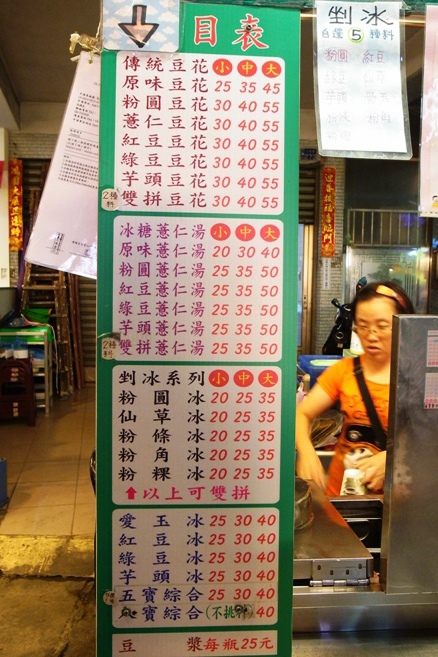 目表
傳統豆花 小 中 大
原味豆花 25 35 45
粉圓豆花 30 40 55
薏仁豆花 30 40 55
紅豆豆花 30 40 55
綠豆豆花 30 40 55
芋頭豆花 30 40 55
2種料 雙拼豆花 30 40 55
冰糖薏仁湯 小 中 大
原味薏仁湯 20 30 40
粉圓薏仁湯 25 35 50
紅豆薏仁湯 25 35 50
綠豆薏仁湯 25 35 50
芋頭薏仁湯 25 35 50
2種料 雙拼薏仁湯 25 35 50
剉冰系列 小 中 大
粉圓冰 20 25 35
仙草冰 20 25 35
粉條冰 20 25 35
粉角冰 20 25 35
粉粿冰 20 25 35
以上可雙拼
愛玉冰 25 30 40
紅豆冰 25 30 40
綠豆冰 25 30 40
芋頭冰 25 30 40
五寶綜合 25 30 40
寶綜合(不挑料) 40
豆漿每瓶25元
剉冰
自選5種料
粉圓 紅豆